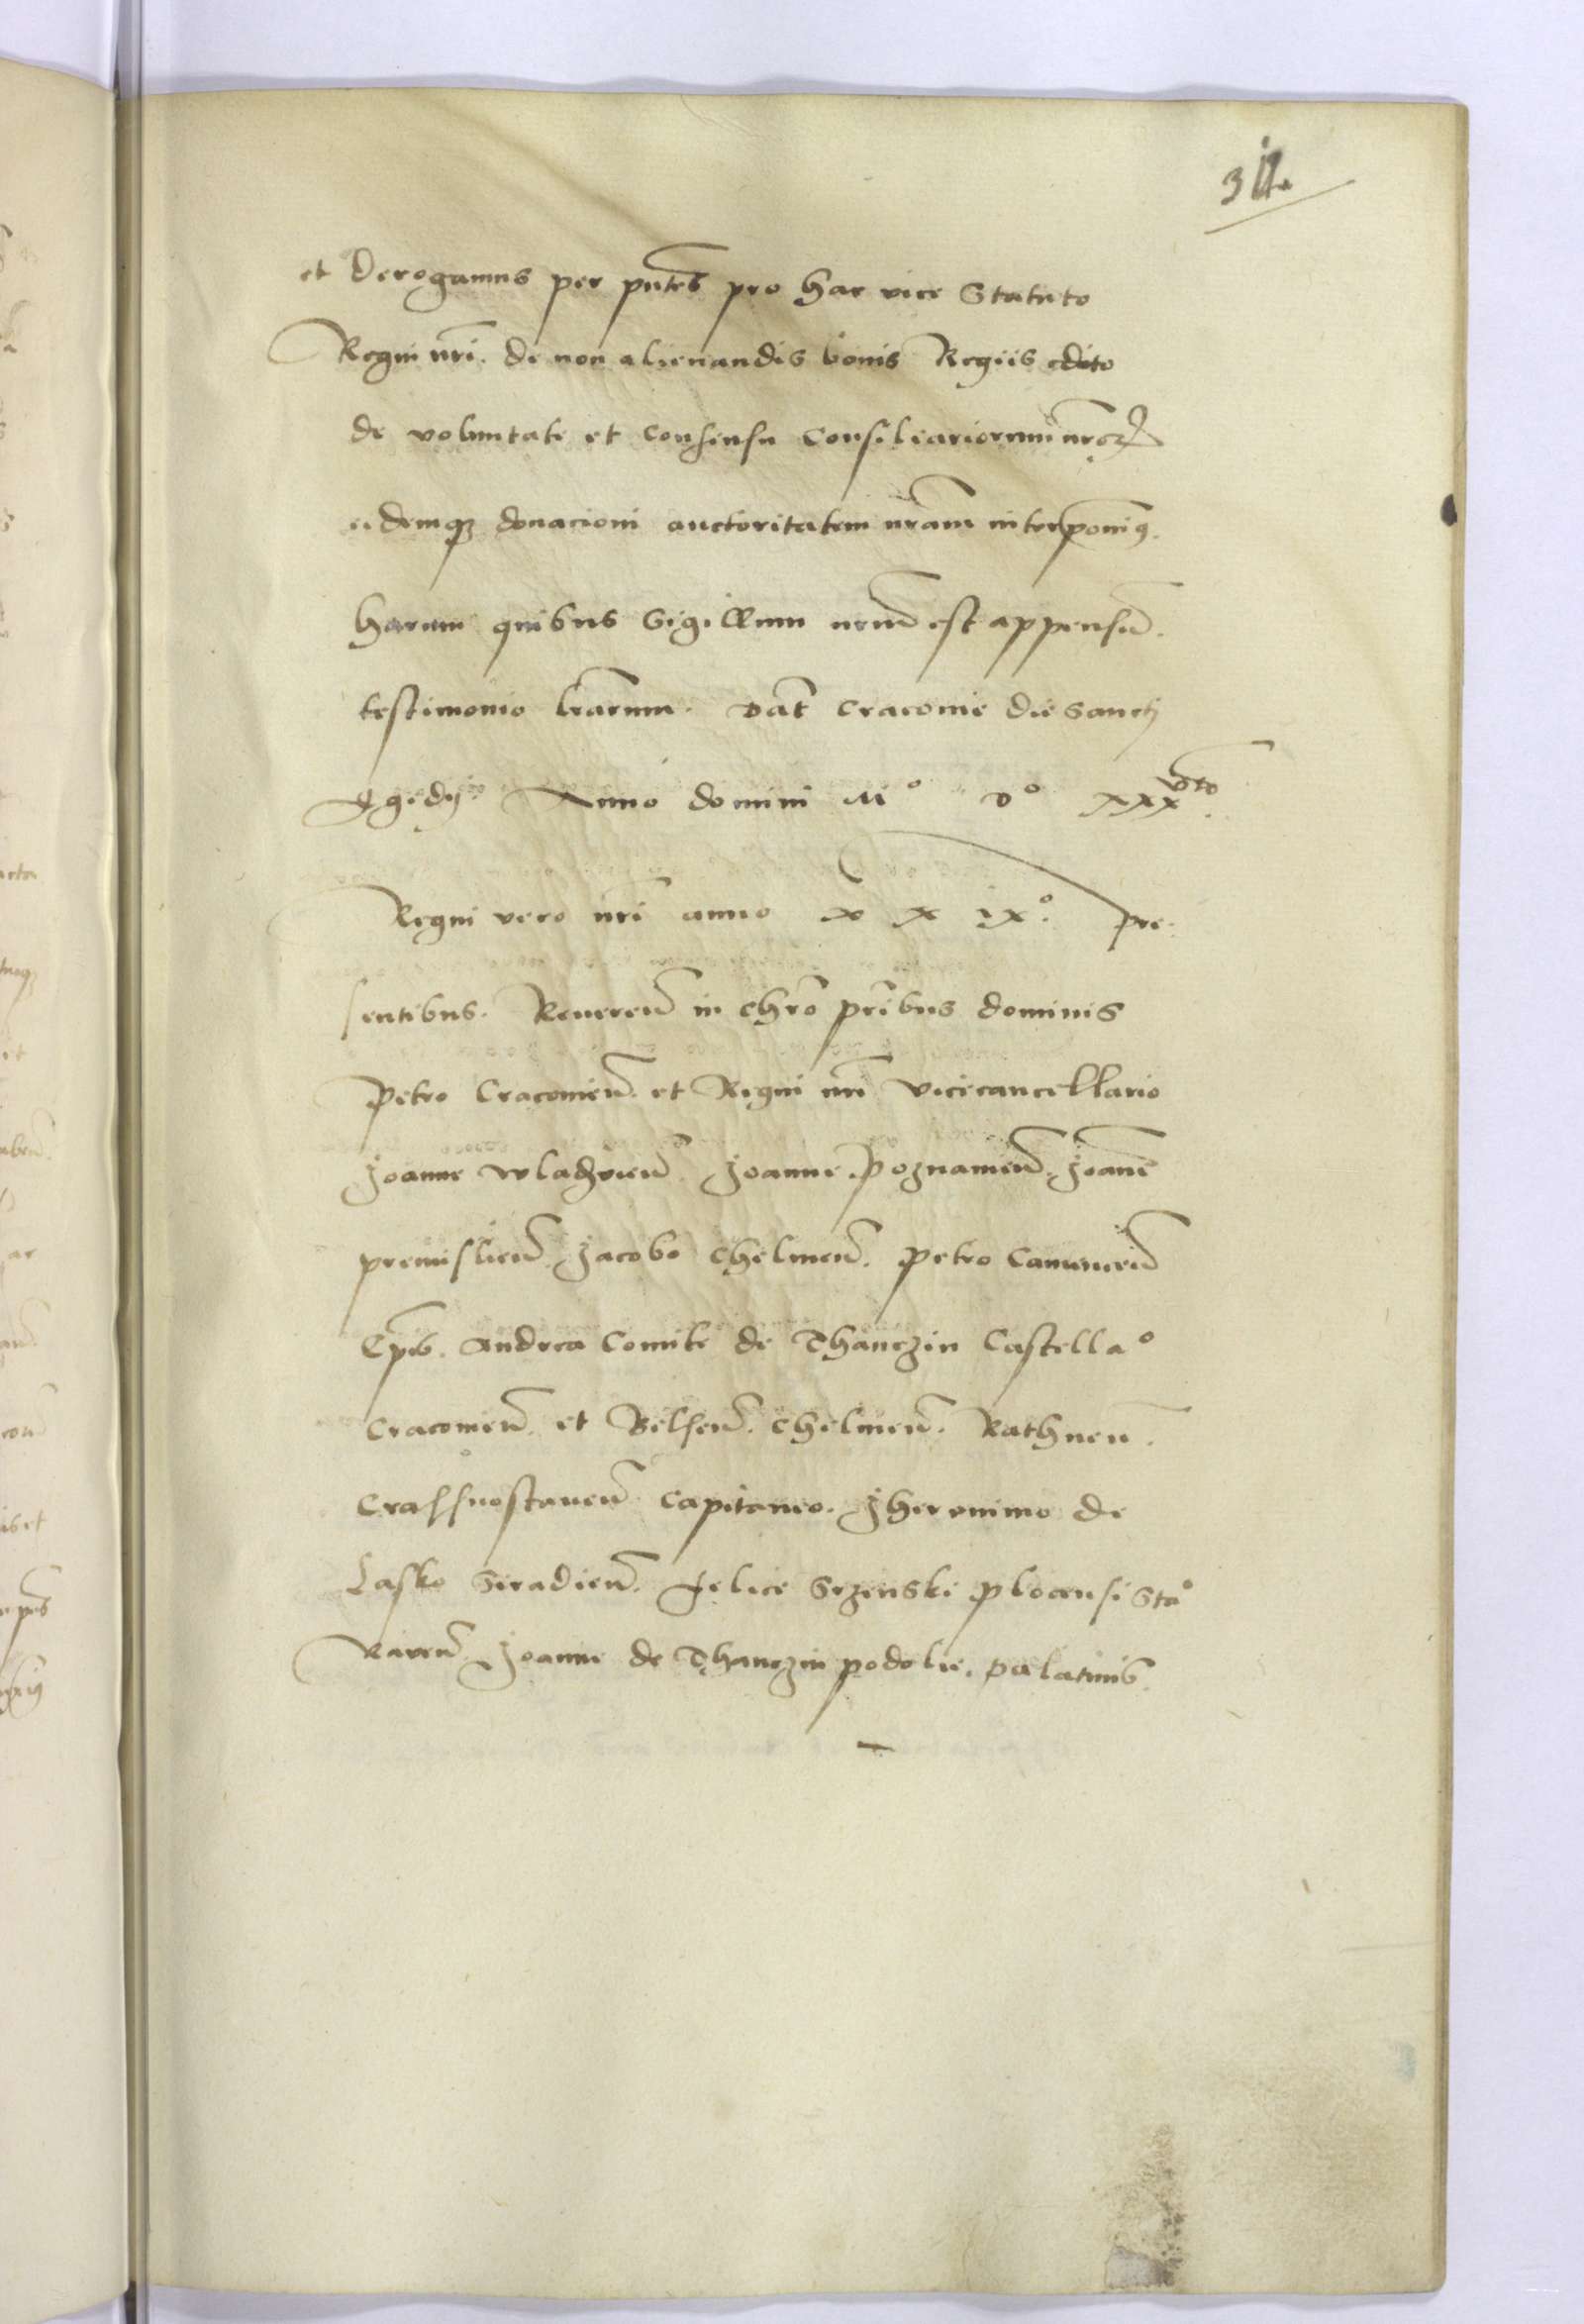 et derogamus per pntes pro hac vice Statuto
Regni nri. de non alienandis bonis Regiis edito
de voluntate et consensu Consiliariorum nroꝝ
eidemqꝫ donacioni auctoritatem nram interponimꝰ.
harum quibus Sigillum nrum est appensum.
testimonio lrarum. Dat Cracovie die sancti
Egidij. Anno domini M° D° xxxvto.
Regni vero nri anno x x ix°. pre-
sentibus. Reveren in chro pribus dominis
Petro Cracovien. et Regni nri Vicecancellario
Joanne Wladzvien. Joanne Poznanien. Joanne
premislien. Jacobo Chelmen. Petro Camenecen
Epis. Andrea Comite de Thanczin Castella°
Cracovien. et Belsen. Chelmen. Rathnen.
Crassnostaven. Capitaneo. Jheronimo de
Lasko Siradien. Felice Srzenski plocensi Sta°
Raven. Joanne de Thanczin podolie. palatinis.